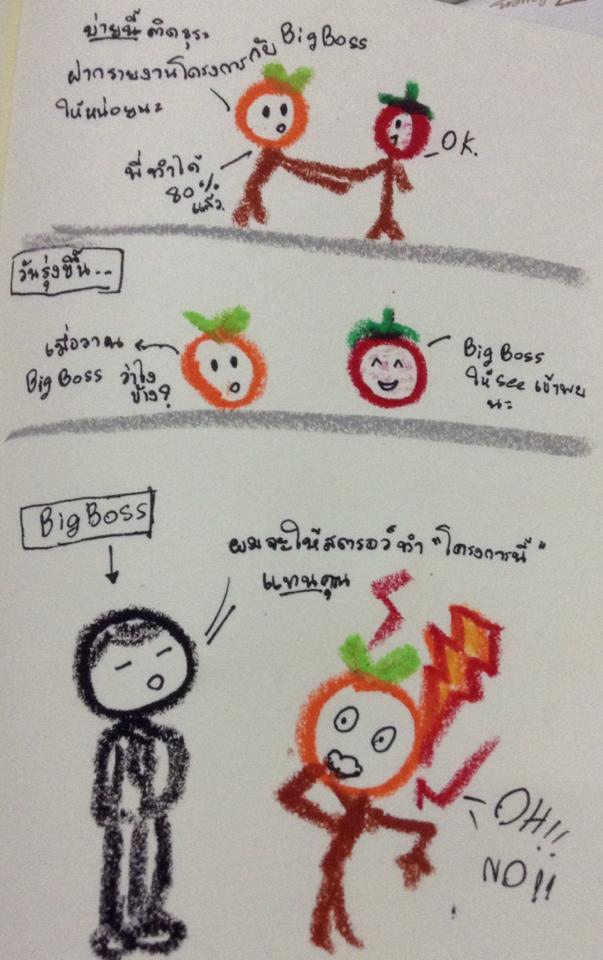 บ่ายนี้ ติดธุระ
ฝากรายงานโครงการกับ BigBoss
ให้หน่อยนะ
OK.
พี่ทำได้
80%
แล้ว.
วันรุ่งขึ้น...
เมื่อวาน
BigBoss ว่าไง
บ้าง?
Big Boss
ให้ see เข้าพบ
นะ
Big Boss
ผมจะให้สตรอว์ทำ "โครงการนี้"
แทนคุณ
OH!!
NO!!